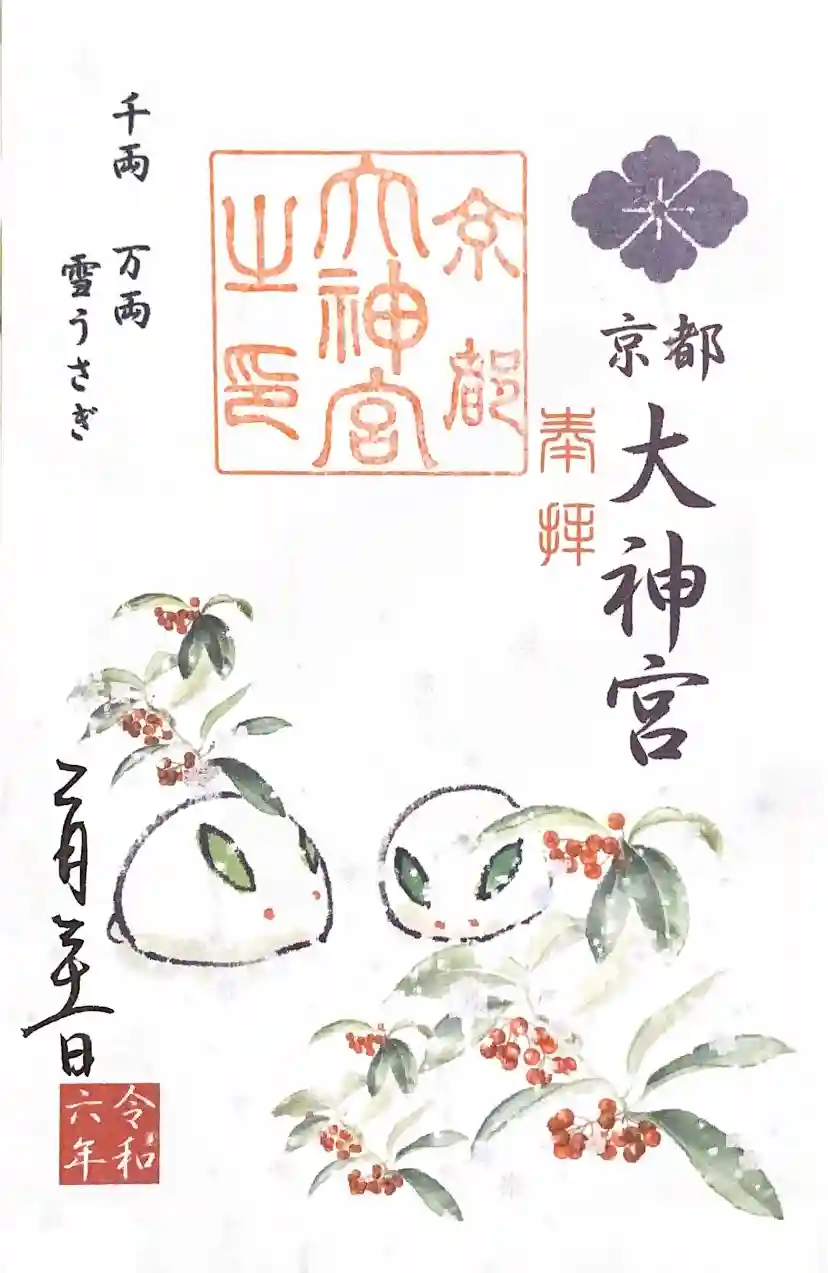 京都
大神宮
奉拝
京都
大神宮
之印
千両 万両
雪うさぎ
二月二十一日
令和
六年